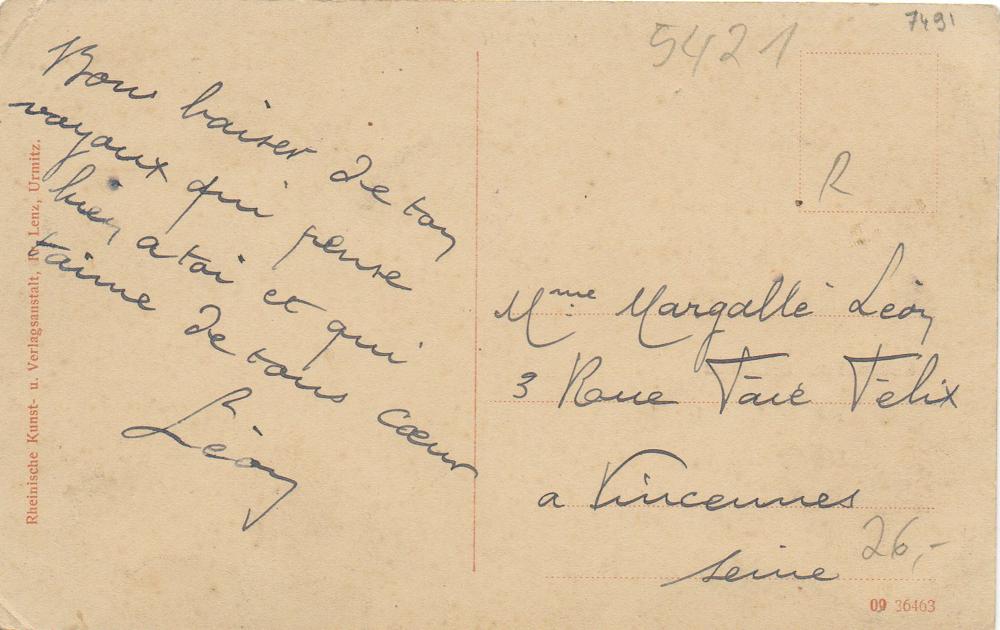 7491
5421
R
Bons baiser de ton
voyoux qui pense
bien a toi et qui
t'aime de tous cœur
Léon
Rheinische Kunst- u. Verlagsanstalt, Lenz, Urmitz.
Mme Margallé Léon
3 Roue Faie Félix
a Vincennes
seine
26,-
09 36463